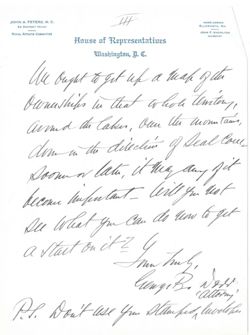 JOHN A. PETERS, M. C.
HOME ADDRESS
ELLSWORTH, ME.
House of Representatives
Washington, D. C.
We ought to get up a map of the
ownerships in that whole territory,
around the lakes, over the mountains,
down in the direction of Seal Cove
sooner or later, it may any of it
become important – Will you not
see what you can do now to get
a start on it?
Yours truly,
George B. Dorr
P.S. Don't use your stamped envelopes